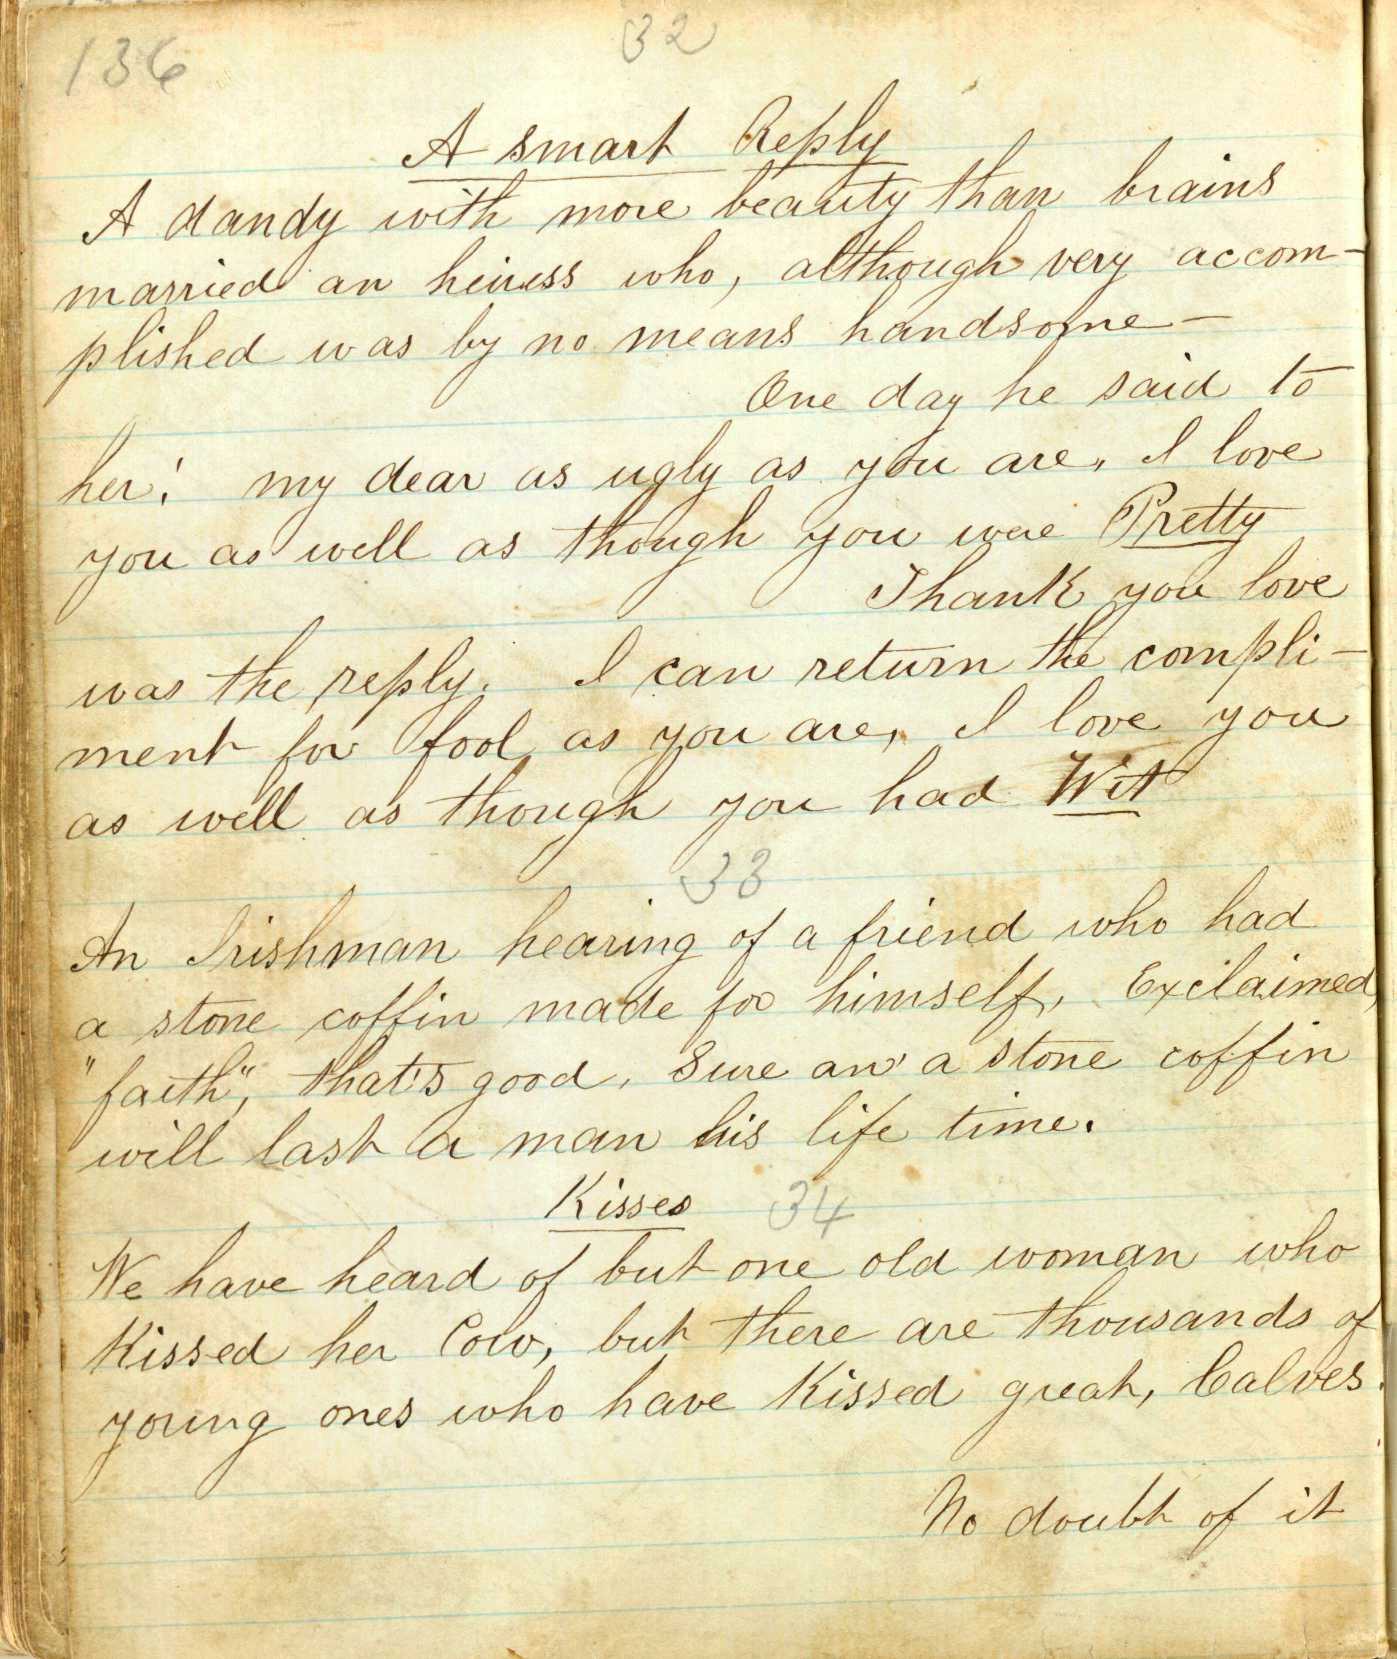 136
32
A smart Reply
A dandy with more beauty than brains
married an heiress who, although very accom-
plished was by no means handsome -
One day he said to
her! my dear as ugly as you are, I love
you as well as though you were Pretty
Thank you love
was the reply. I can return the compli-
ment for fool as you are, I love you
as well as though you had Wit
33
An Irishman hearing of a friend who had
a stone coffin made for himself, Exclaimed,
"faith", that's good, Sure an' a stone coffin
will last a man his life time.
Kisses 34
We have heard of but one old woman who
Kissed her Cow, but there are thousands of
young ones who have Kissed great, Calves.
No doubt of it